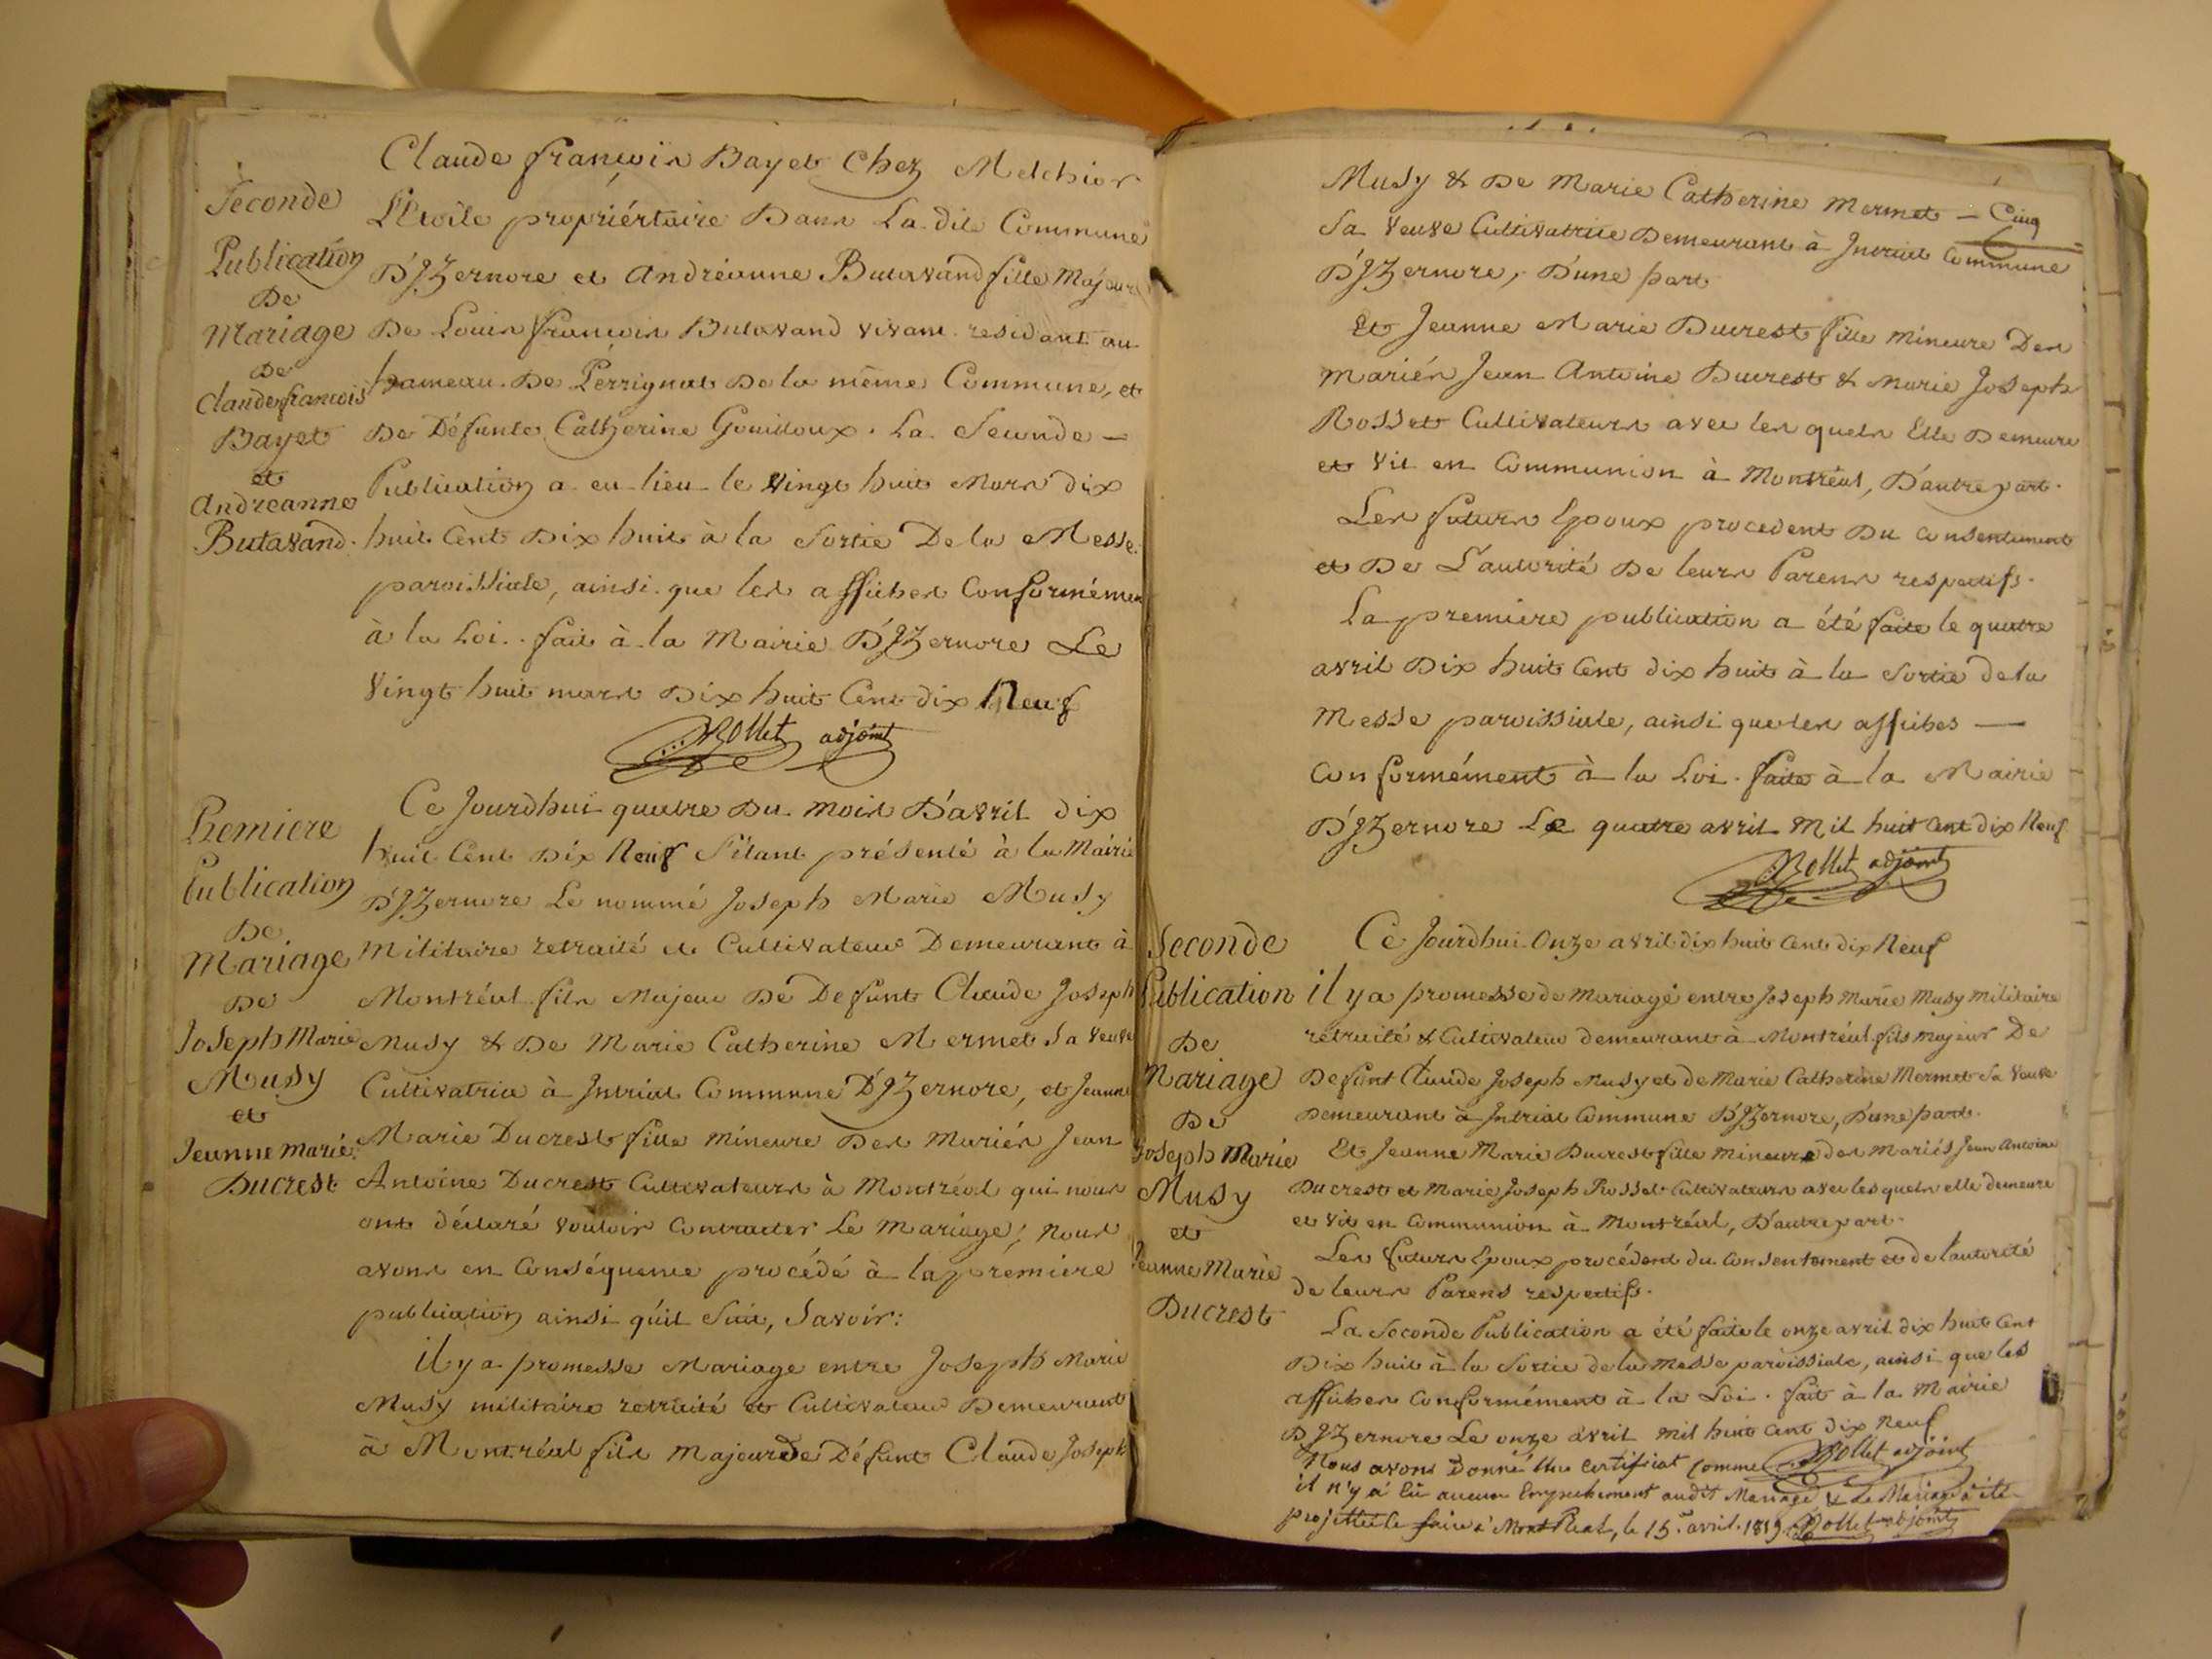 Seconde
Publication
De
Mariage
De
Claude francois
Bayet
et
Andreanne
Butavand.
Claude françois Bayet Chez Melchior
L'Etoile propriértaire Dans La dite Commune
D'JZernore et Andréanne Butavand fille Majeure
De Louis françois Butavand vivant residant au
hameau De Perrignat De la même Commune, et
De Défunte Catherine Gouilloux. La Seconde —
Publication a eu lieu le vingt huit Mars dix
huit Cent Dix huit à la Sortie De la Messe
paroissiale, ainsi que les affiches Conformémen
à la Loi. fait à la Mairie D'JZernore Le
vingt huit mars Dix huit Cent dix Neuf
Rollet adjoint
Premiere
Publication
De
Mariage
De
Joseph Marie
Musy
et
Jeanne Marie
Ducrest
Ce Jourdhui quatre Du mois D'avril dix
huit Cent Dix Neuf S'étant présenté à la Mairie
D'JZernore Le nommé Joseph Marie Musy
Militaire retraité et Cultivateur Demeurant à
Montréal fils Majeur De Defunt Claude Joseph
Musy & De Marie Catherine Mermet Sa veuve
Cultivatrice à Intriat Commune D'JZernore, et Jeanne
Marie Ducrest fille Mineure Des Mariés Jean
Antoine Ducrest Cultivateurs à Montréal qui nous
ont déclaré vouloir Contracter Le Mariage; Nous
avons en Conséquence procédé à la première
publication ainsi qu'il Suit, Savoir:
il y a promesse Mariage entre Joseph Marie
Musy militaire retraité et Cultivateur Demeurant
à Montréal fils Majeur De Défunt Claude Joseph
Musy & De Marie Catherine Mermet — Cinq
Sa veuve Cultivatrice Demeurant à Intriat Commune
D'JZernore, D'une part
Et Jeanne Marie Ducrest fille Mineure Des
Mariés Jean Antoine Ducrest & Marie Joseph
Rosset Cultivateurs avec les quels Elle Demeure
et vit en Communion à Montréal, D'autre part.
Les futurs Epoux procedent Du Consentement
et De L'autorité De leurs Parens respectifs.
La premiere publication a été faite le quatre
avril Dix huit Cent dix huit à la Sortie de la
Messe paroissiale, ainsi que les affiches —
Conformément à la Loi. faite à la Mairie
D'JZernore Le quatre avril Mil huit Cent dix Neuf
Rollet adjoint
Seconde
Publication
De
Mariage
De
Joseph Marie
Musy
et
Jeanne Marie
Ducrest
Ce Jourdhui Onze avril dix huit Cent dix Neuf
il y a promesse de mariage entre Joseph Marie Musy Militaire
retraité & Cultivateur demeurant à Montréal fils majeur De
Defunt Claude Joseph Musy et de Marie Catherine Mermet Sa veuve
Demeurant à Intriat Commune D'JZernore, D'une part.
Et Jeanne Marie Ducrest fille mineure des Mariés Jean Antoine
Ducrest et Marie Joseph Rosset Cultivateurs avec lesquels elle demeure
et vit en Communion à Montréal, D'autre part.
Les futurs Epoux procédent du Consentement et de l'autorité
de leurs Parens respectifs.
La Seconde Publication a été faite le onze avril dix huit Cent
Dix huit à la Sortie de la Messe paroissiale, ainsi que les
affiches Conformément à la Loi. fait à la Mairie
D'JZernore Le onze avril mil huit Cent Dix Neuf
Rollet adjoint
Nous avons Donné Un Certificat Comme
il n'y a Eû aucun Empechement audit Mariage & Le Mariage a été
projetté le faire à Mont Real, le 15e avril. 1819. Rollet adjoint